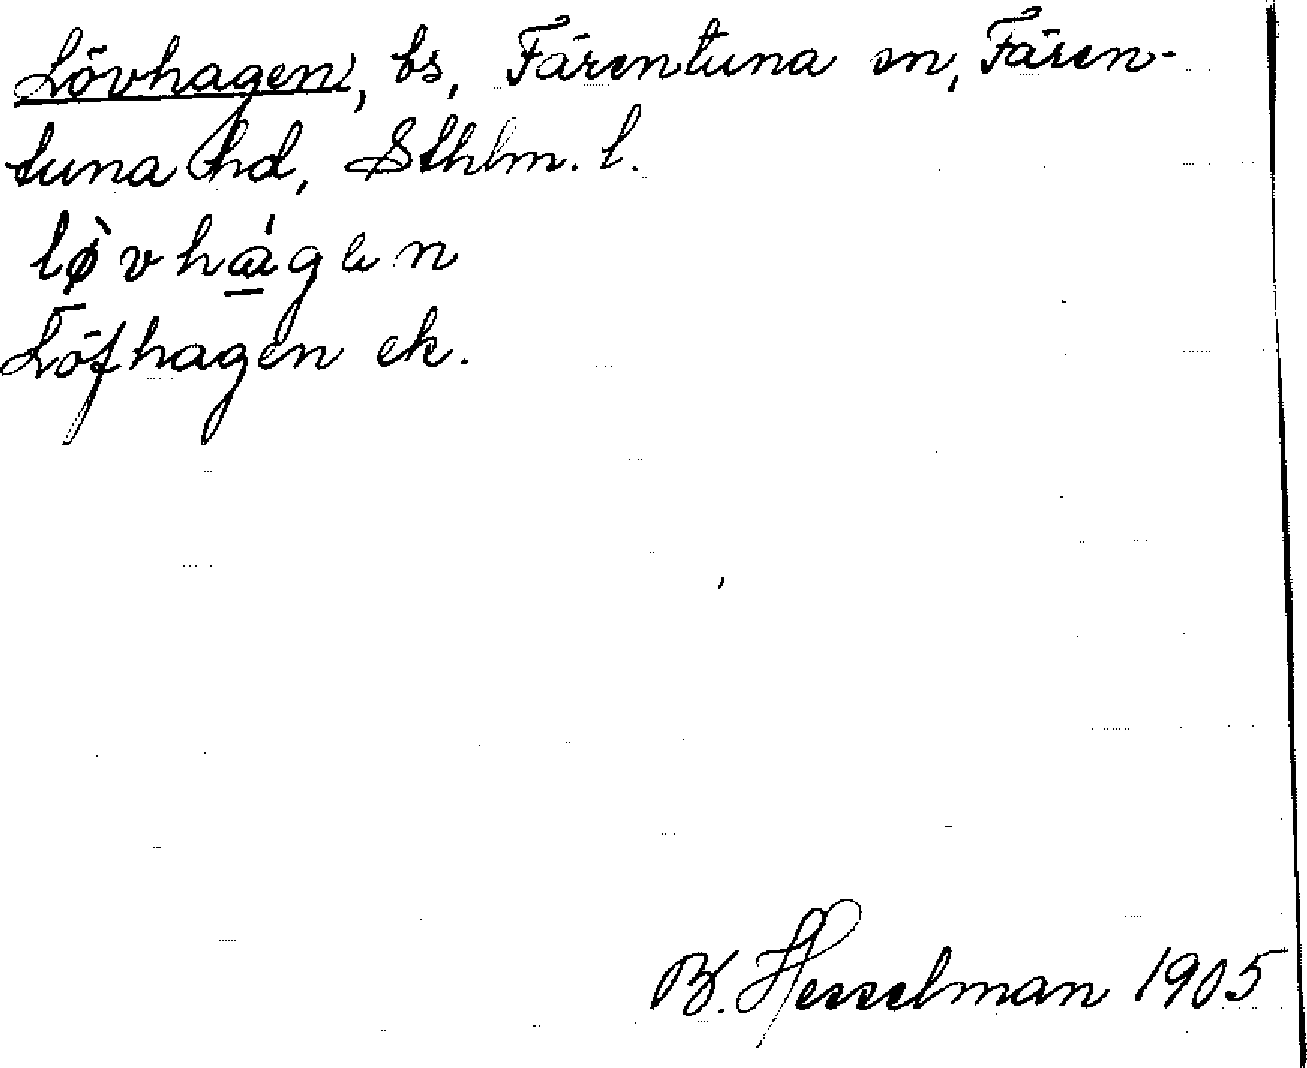 Lövhagen, bs, Färentuna sn, Fären-
tuna hd, Sthlm. l.
lø̀vhá̱gen
Löfhagen ek.
B. Hesselman 1905